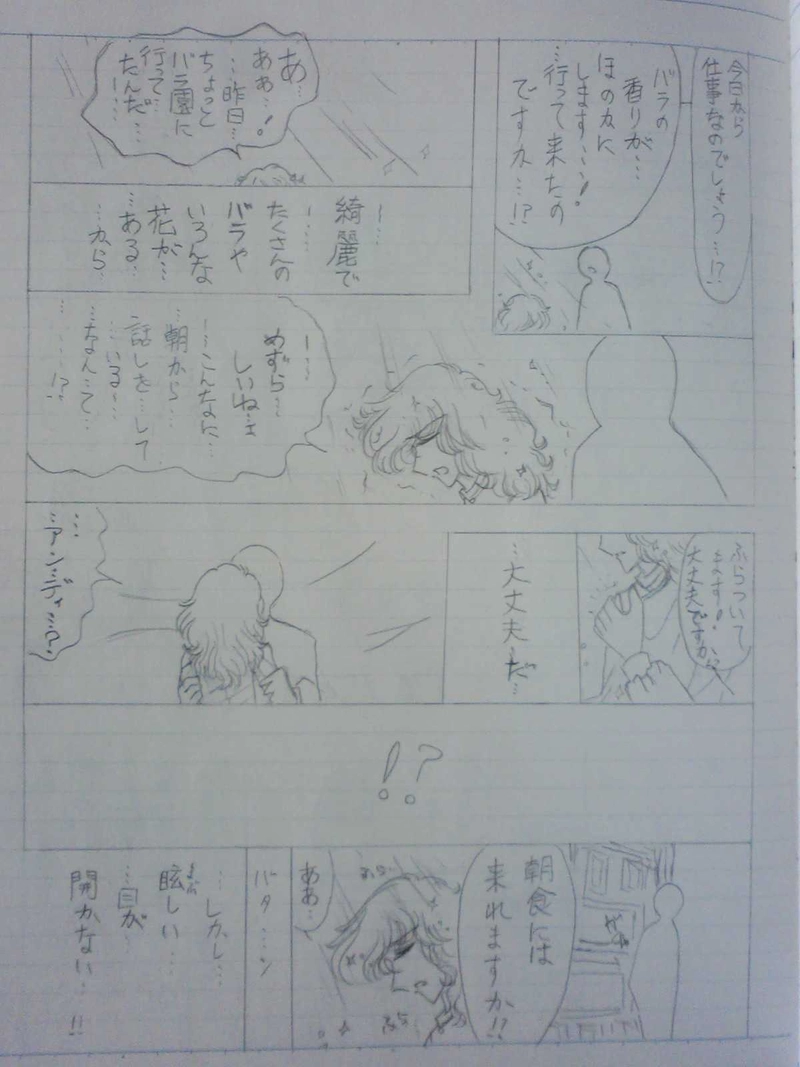 今日から
仕事なのでしょう…!?
バラの
香りが…
ほのかに
します…!
…行って来たの
ですか…!?
あ…
ああ…!
…昨日…
ちょっと
バラ園に
行って…
たんだ…
…
綺麗で
…
たくさんの
バラや
いろんな
花が…
…ある…
…から…
…
めずら…
しいねェ
…こんなに…
…朝から…
話しを…して
…いる…
…なん…て…
…!?
ふらついて
ます!…
大丈夫ですか…!?
…大丈夫…だ…
…
…アン…ディ…?
!?
朝食には
来れますか!?
ああ…
ふら
ふら
バタ…ン
…しかし…
眩しい…
まぶ
…目が…
開かない…!!